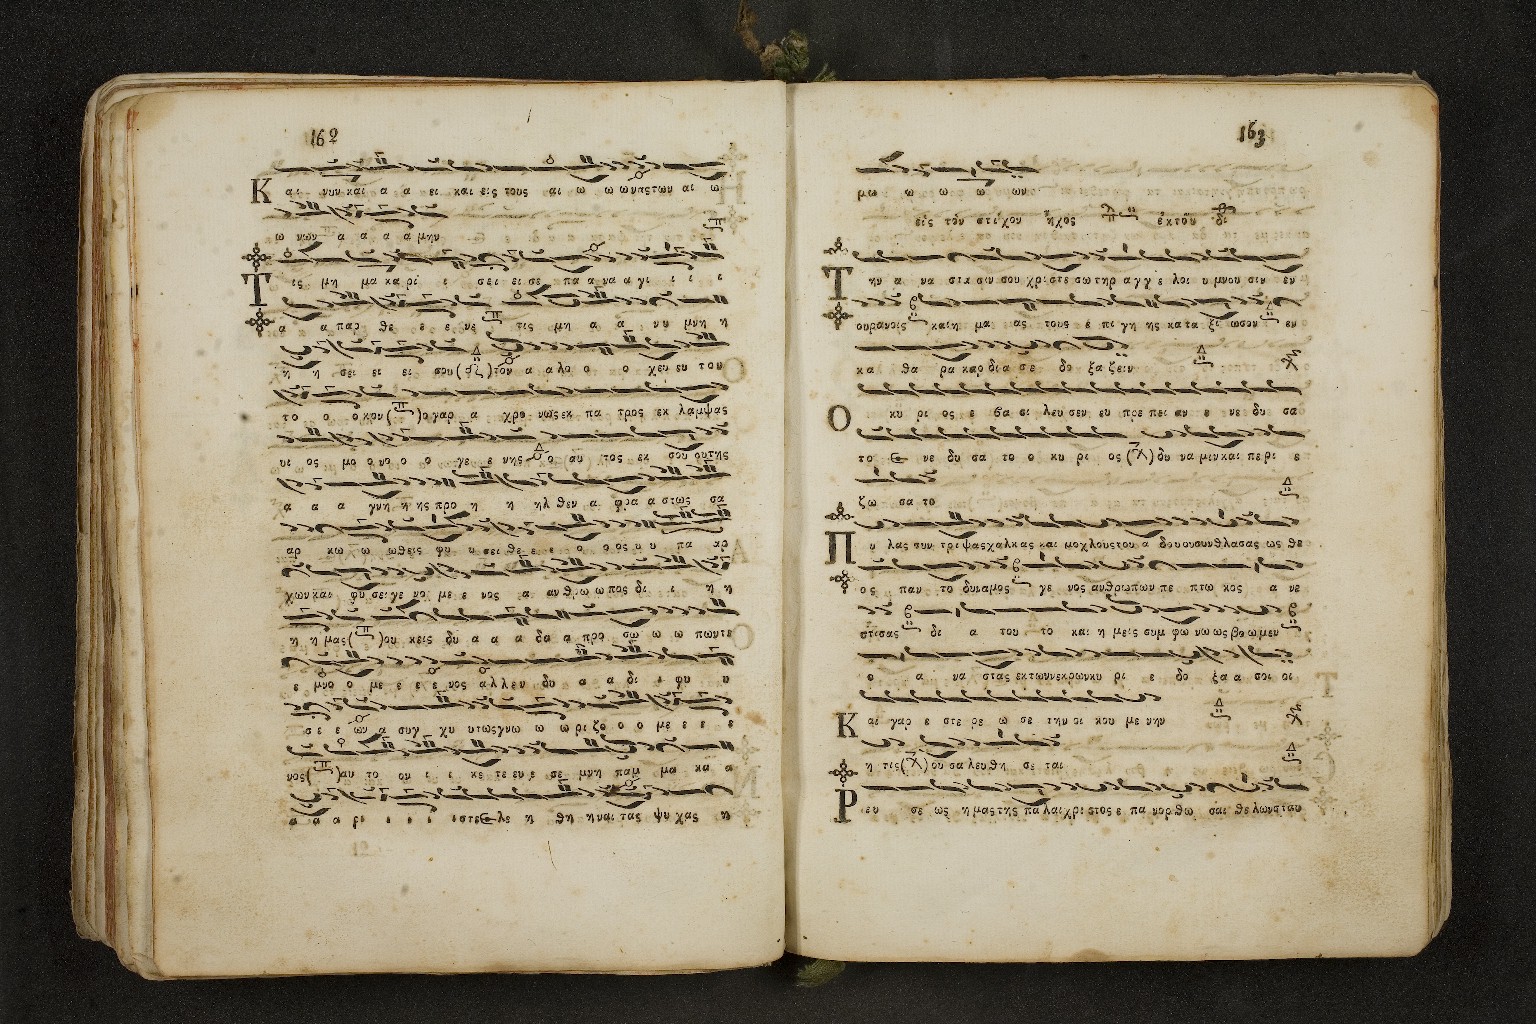 162
Κ αι νυν και α α ει και εις τους αι ω ω ω νας των αι ω
ω νων α α α α μην
Τ ις μη μα κα ρι ι σει ει σε πα α να α γι ι ι ι
α α παρ θε ε ε νε τις μη α α νυ μνη η
η η σει ει ει σου ( ) τον α α λο ο ο χευ ευ του
το ο ο κον ( ) ο γαρ α χρο νως εκ πα τρος εκ λαμψας
υι ος μο ο νο ο ο γε ε νης ο αυ τος εκ σου ου της
α α α γνη η ης προ η η ηλ θεν α φρα α στως σα
αρ κω ω ωθεις φυ υ σει θε ε ε ο ο ος υ υ πα αρ
χων και φυ σει γε νο με ε νος α αν θρω ω πος δι ι η η
η η μας ( ) ου κεις δυ α α α δα α προ σω ω ω πων τε
ε μνο ο με ε ε ε νος αλλ εν δυ α α δι ι φυ υ
σε ε ων α συγ χυ υτως γνω ω ω ρι ζο ο ο με ε ε ε
νος ( ) αυ το ον ι ι κε τε ευ ε σε μνη παμ μα κα α
α α α ρι ι ι ι ι στε ε λε η θη η ναι τας ψυ χας η
163
μω ω ω ω ων
εις τον στιχον ἦχος ἐκ τοῦ δι
Τ ην α να στα σιν σου χριστε σωτηρ αγγε λοι υ μνου σιν εν
ουρανοις και η μα ας τους ε πι γη ης κατα ξι ωσον εν
κα θα ρα καρδια σε δο ξα ζειν
Ο κυ ρι ος ε βα σι λευ σεν ευ πρε πει αν ε νε δυ σα
το ε νε δυ σα το ο κυ ρι ος ( ) δυ να μιν και πε ρι ε
ζω σα το
Π υ λας συν τρι ψας χαλκας και μοχλους του α δου ου συνθλασας ως θε
ος παν το δυναμος γε νος ανθρωπων πε πτω κος α νε
στισας δι α του το και η μεις συμ φω νω ως βο ω μεν
ο α να στας εκ των νεκρων κυ ρι ε δο ξα α σοι οι
Κ αι γαρ ε στε ρε ω σε την οι κου με νην
η τις ( ) ου σα λευθη σε ται
Ρ ευ σε ως η μας της παλαι χρι στος ε πα νορ θω σαι θε λων σταυ